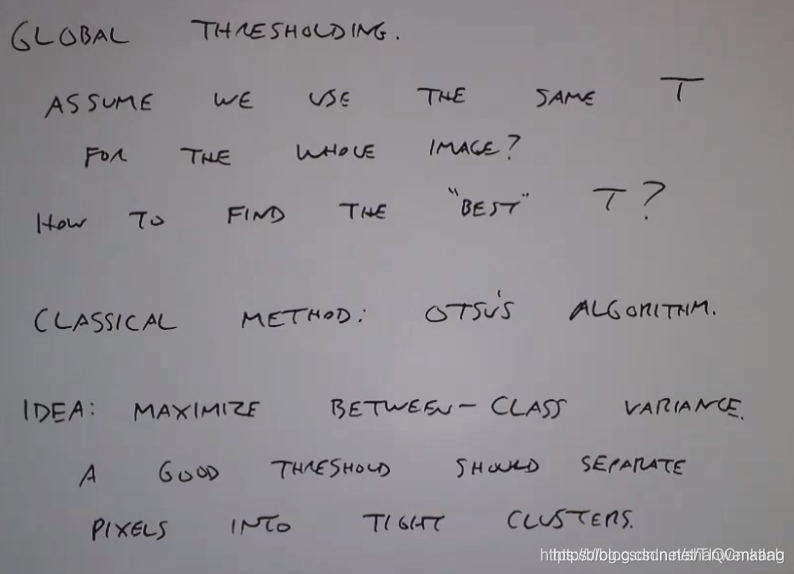 GLOBAL THRESHOLDING.
ASSUME WE USE THE SAME T
FOR THE WHOLE IMAGE?
HOW TO FIND THE "BEST" T?
CLASSICAL METHOD: OTSU'S ALGORITHM.
IDEA: MAXIMIZE BETWEEN-CLASS VARIANCE.
A GOOD THRESHOLD SHOULD SEPARATE
PIXELS INTO TIGHT CLUSTERS.